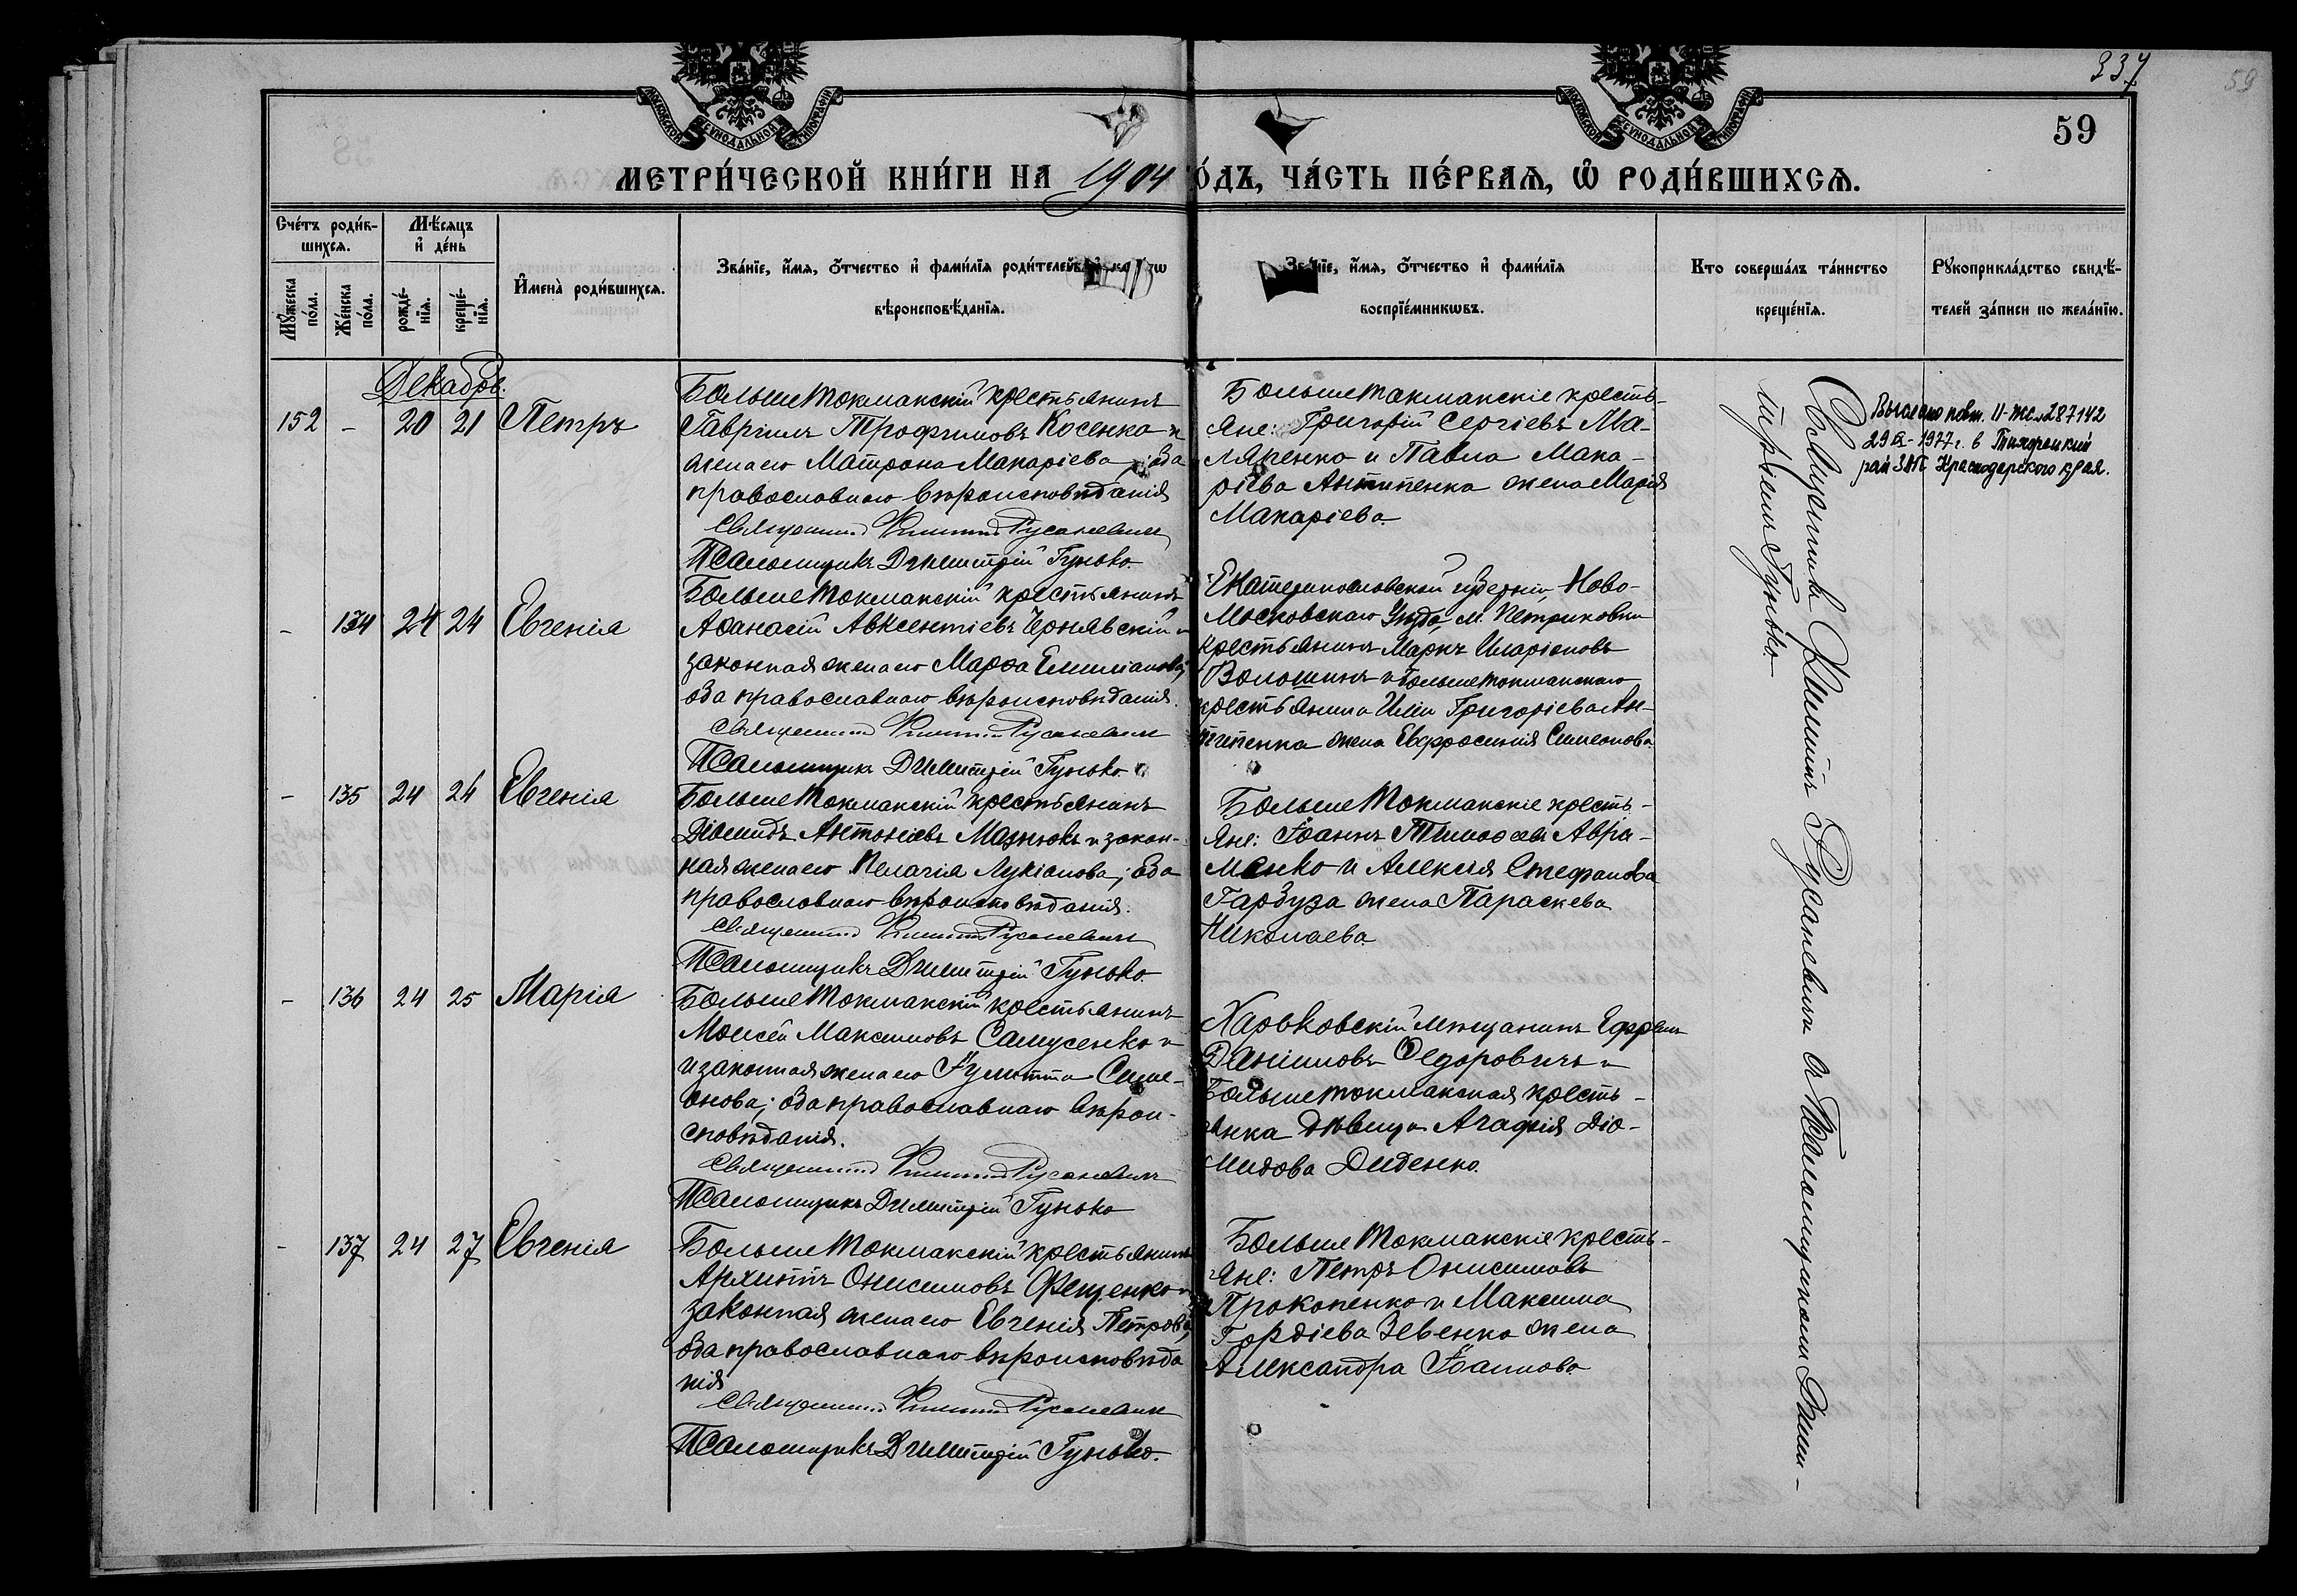 337
59
59
МОСКОВСКОЙ СѴНОДАЛЬНОЙ ТИПОГРАФІИ
МОСКОВСКОЙ СѴНОДАЛЬНОЙ ТИПОГРАФІИ
МЕТРИ́ЧЕСКОЙ КНИ́ГИ НА 1904 ГО́ДЪ, ЧА́СТЬ ПЕ́РВАѦ, Ѡ҆ РОДИ́ВШИХСѦ.
Сче́тъ роди́в-
шихсѧ.
Мꙋ́жеска
по́ла.
Же́нска
по́ла.
Мѣ́сѧцъ
и҆ де́нь
рожде́-
нїѧ.
креще́-
нїѧ.
И҆мена̀ роди́вшихсѧ.
Зва́нїе, и҆́мѧ, ѻ҆́тчество и҆ фами́лїѧ роди́телей,
вѣроисповѣ́данїѧ.
Зва́нїе, и҆́мѧ, ѻ҆́тчество и҆ фами́лїѧ
воспрїе́мникѡвъ.
Кто соверша́лъ та́инство
креще́нїѧ.
Рꙋкоприкла́дство свидѣ́-
телей за́писи по жела́нїю.
Декабрь.
152 - 20 21 Петръ
Больше Токмакскій крестьянинъ
Гавріилъ Трофимовъ Косенко и
жена его Матрона Макаріева; оба
православнаго вѣроисповѣданія
Священникъ Филиппъ Русаневичъ
Псаломщикъ Димитрій Гунько
Больше Токмакскіе кресть-
яне: Григорій Сергіевъ Ма-
ляренко и Павла Мака-
ріева Антипенка жена Марія
Макаріева.
Выслано повт. II-ЖС № 287142
29 IX-1977 г. в Тихорецкий
рай ЗАГС Краснодарского края.
- 134 24 24 Евгенія
Больше Токмакскій крестьянинъ
Аѳанасій Авксентіевъ Чернявскій и
законная жена его Марѳа Емиліанова;
оба православнаго вѣроисповѣданія.
Священникъ Филиппъ Русаневичъ
Псаломщикъ Димитрій Гунько
Екатеринославской губерніи, Ново-
Московскаго Уѣзда, м. Петриковки
крестьянинъ Маркъ Иларіоновъ
Волошинъ и Больше Токмакскаго
крестьянина Иліи Григоріева Ан-
типенка жена Евфросинія Симеонова
- 135 24 24 Евгенія
Больше Токмакскій крестьянинъ
Діомидъ Антоніевъ Мазнюкъ и закон-
ная жена его Пелагія Лукіанова; оба
православнаго вѣроисповѣданія.
Священникъ Филиппъ Русаневичъ
Псаломщикъ Димитрій Гунько.
Больше Токмакскіе кресть-
яне: Іоаннъ Тимоѳеевъ Авра-
менко и Алексія Стефанова
Гарбуза жена Параскева
Николаева.
- 136 24 25 Марія
Больше Токмакскій крестьянинъ
Моисей Максимовъ Самусенко и
и законная жена его Іулитта Симе-
онова; оба православнаго вѣрои-
сповѣданія.
Священникъ Филиппъ Русаневичъ
Псаломщикъ Димитрій Гунько
Харьковскій мѣщанинъ Ефремъ
Даніиловъ Ѳедоровичъ и
Больше Токмакская кресть-
янка дѣвица Агафія Діо-
мидова Диденко.
- 137 24 27 Евгенія
Больше Токмакскій крестьянинъ
Архиппъ Онисимовъ Фещенко и
законная жена его Евгенія Петрова,
оба православнаго вѣроисповѣда
нія
Священникъ Филиппъ Русаневичъ
Псаломщикъ Димитрій Гунько.
Больше Токмакскіе кресть-
яне: Петръ Онисимовъ
Прокопенко и Максима
Гордіева Зевенка жена
Александра Іоаннова.
Священникъ Филиппъ Русаневичъ съ Псаломщикомъ Дими-
тріемъ Гунько.